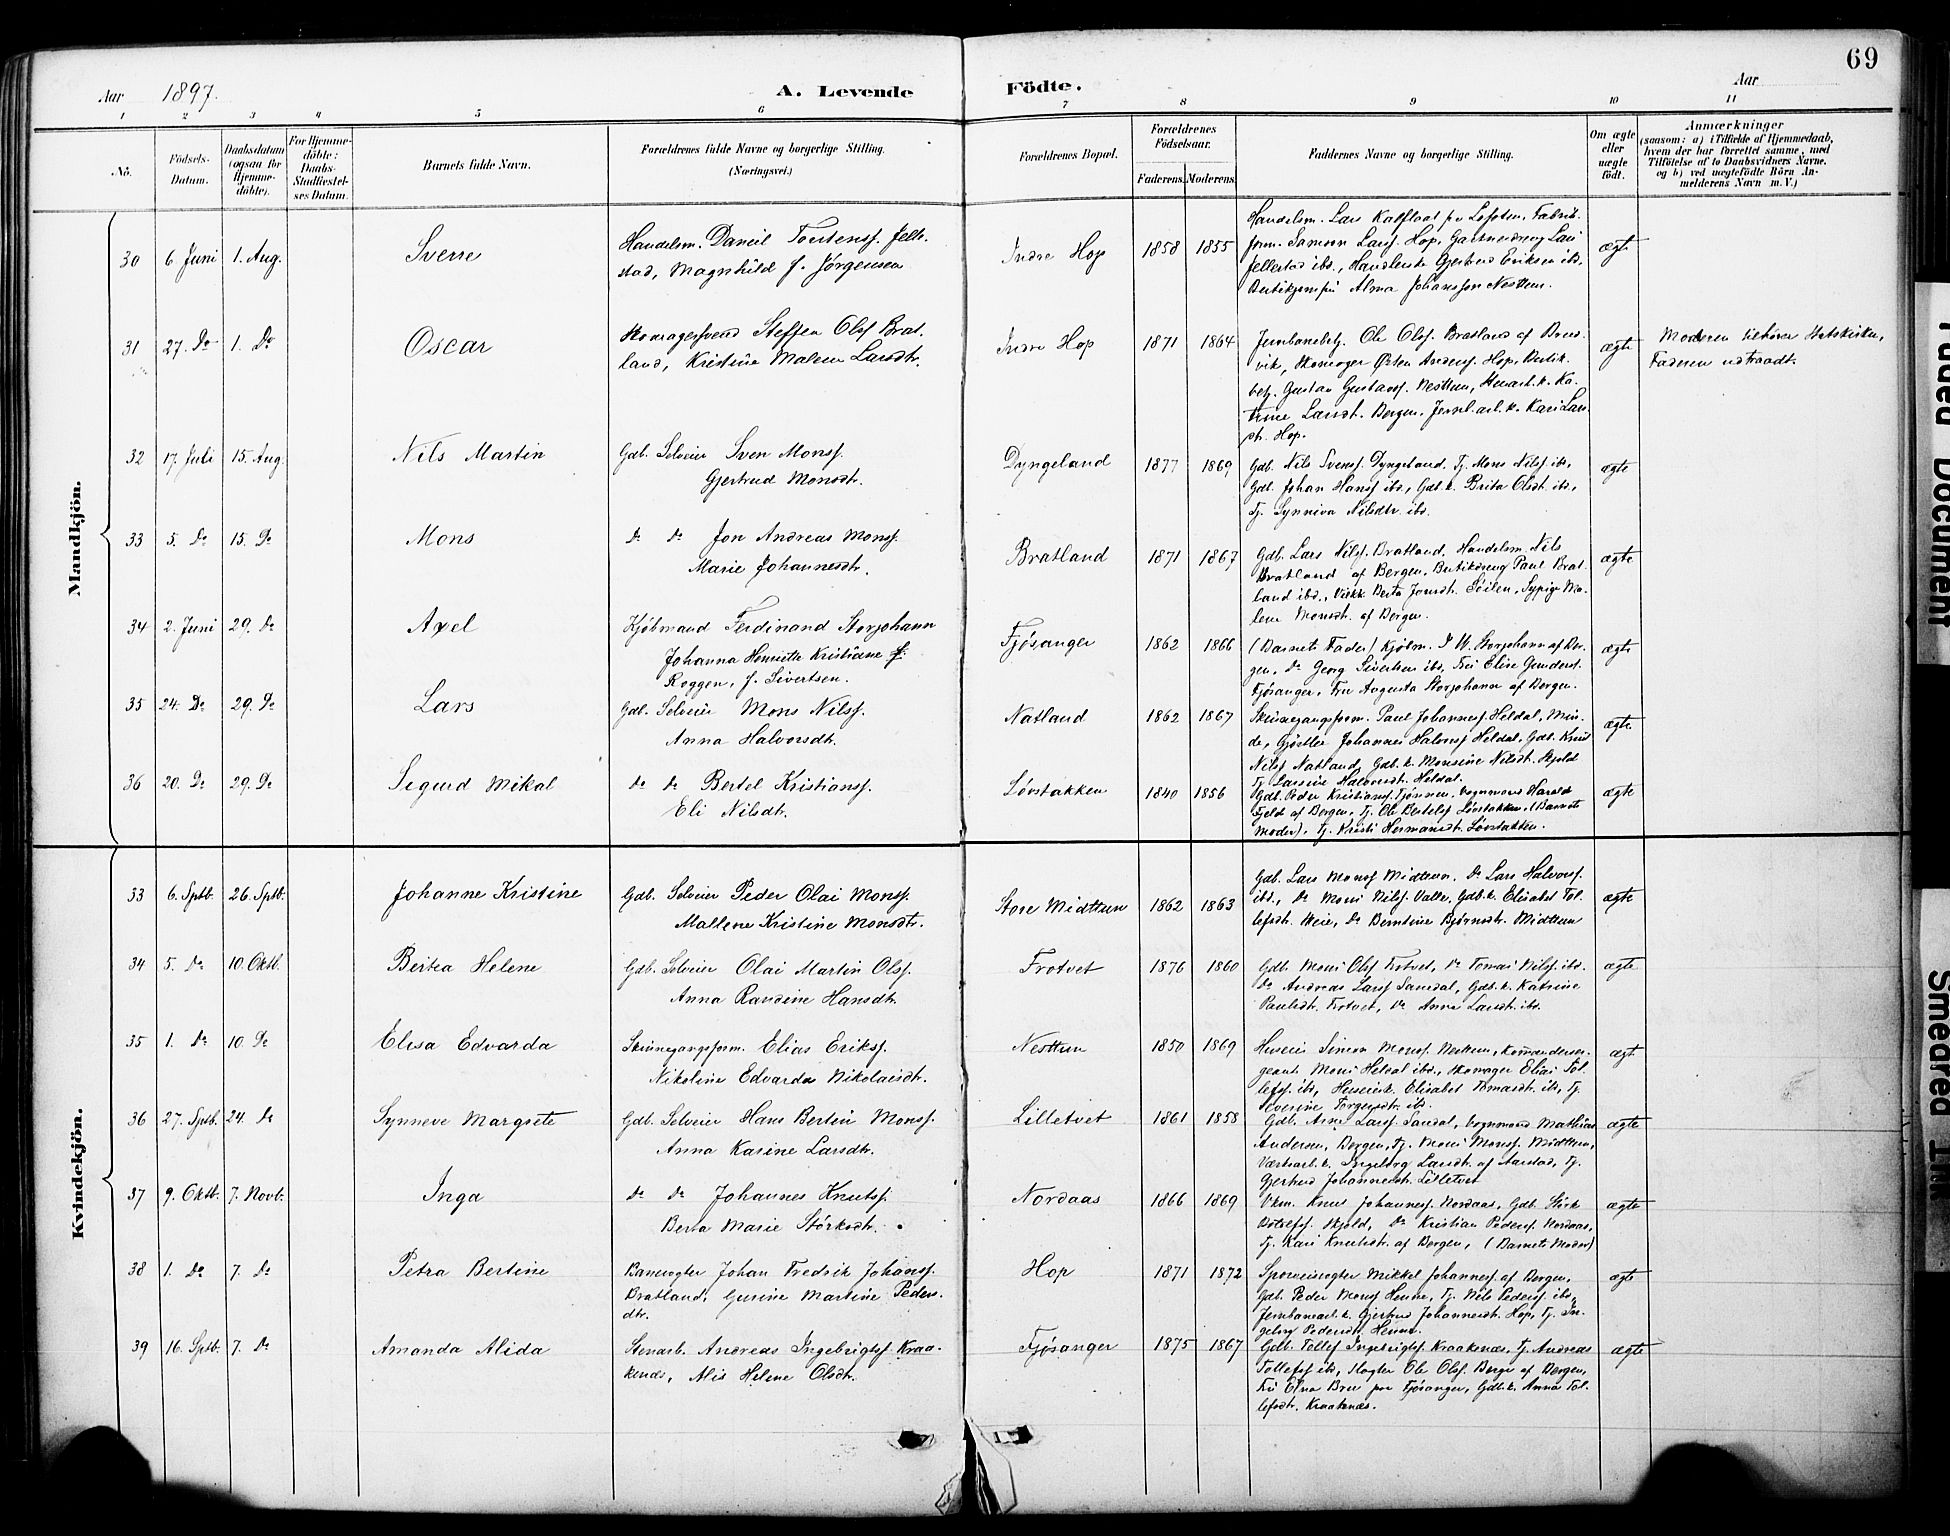 69
Aar 1897. A. Levende Födte. Aar
1 2 3 4 5 6 7 8 9 10 11
No. Födsels-Datum. Daabsdatum (ogsaa for Hjemme-döbte). For Hjemme-döbte: Daabs-Stadfæstel-ses Datum. Barnets fulde Navn. Forældrenes fulde Navne og borgerlige Stilling. (Næringsvei.) Forældrenes Bopæl. Forældrenes Födselsaar. Faderens. Moderens. Faddernes Navne og borgerlige Stilling. Om ægte eller uægte födt. Anmærkninger (saasom: a) i Tilfælde af Hjemmedaab, hvem der har forrettet samme, med Tilföielse af to Daabsvidners Navne. og b) ved uægtefödte Börn An-melderens Navn m. V.)
Mandkjön.
30 6 Juni 1. Aug. Sverre Handelsm. Daniel Torstensf. Jelle-
stad, Magnhild f. Jörgensen Indre Hop 1858 1855 Handelsm. Lars Kalflaat fra Lofoten, Fabrik-
form. Samson Larsf. Hop, Gartnerdreng Lars
Jellestad ibd., Handlerske Gjertrud Eriksen ibd.,
Alma Johansson Nesttun. ægte
31 27. Do 1. Do Oscar Skomagersvend Steffen Olsf. Brat-
land, Kristine Malene Larsdtr. Indre Hop 1871 1864 Jernbanebetj. Ole Olsf. Bratland af Bred-
vik, Skomager Østen Andersf. Hop, Butik-
betj. Gustav Gustavs. Nesttun, Stenarb. k. Ka-
trine Larsdt. Bergen, Jernb.arb. k. Kari Lars-
dt. Hop. ægte Moderen tilhører Statskirken,
Faderen udtraadt.
32 17. Juli 15. Aug. Nils Martin Gdb. Selveier Sven Monsf.
Gjertrud Monsdt. Dyngeland 1877 1869 Gdb. Nils Svensf. Dyngeland, Tj. Mons Nilsf. ibd.,
Gdb. Johan Hansf. ibd., Gdb. k. Brita Olsdt. ibd.,
Tj. Synniva Nilsdtr. ibd. ægte
33 5. Do 15. Do Mons Do Do Jon Andreas Monsf.
Marie Johannesdtr. Bratland 1871 1867 Gdb. Lars Nilsf. Bratland, Handelsm. Nils
Bratland af Bergen, Butikdreng Paul Brat-
land ibd., Berta Jonsdt. Seilen, Sypige Ma-
lene Monsdt. af Bergen. ægte
34 2. Juni 29. Do Axel Kjøbmand Ferdinand Storjohann
Johanna Henriette Kristiane f.
Roggen, f. Sivertsen. Fjøsanger 1862 1866 (Barnets Fader) Kjøbm. J. W. Storjohann af Ber-
gen, Do Georg Sivertsen ibd., Fru Elise Gundersf.
Fjøsanger, Fru Augusta Storjohann af Bergen. ægte
35 24. Do 29. Do Lars Gdb. Selveier Mons Nilsf.
Anna Halvorsdtr. Natland 1862 1867 Skinnegangsform. Paul Johannesf. Heldal, Min-
de, Gjørtler Johannes Halvorsf. Heldal, Gdb. Knut
Nilsf. Natland, Gdb. k. Monsine Nilsdt. Skjold
Tj. Larsine Halvorsdt. Heldal. ægte
36 20. Do 29. Do Sigurd Mikal Do Do Bertel Kristiansf.
Eli Nilsdtr. Løvstakken 1840 1856 Gdb. Peder Kristiansf. Tjønnen, Vognmand Harald
Fjeld af Bergen, Tj. Ole Bertelsf. Løvstakken, (Barnets
Moder), Tj. Kristi Hermansdt. Løvstakken. ægte
Kvindekjön.
33 6. Sptb. 26. Sptb. Johanne Kristine Gdb. Selveier Peder Olai Monsf.
Mallene Kristine Monsdtr. Store Midttun 1862 1863 Gdb. Lars Monsf. Midttun, Do Lars Halvorsf.
ibd., Do Mons Nilsf. Valle, Gdb. k. Elisabet Tol-
lefsdt. Steie, Do Berntine Bjørnsdt. Midttun ægte
34 5. Do 10. Oktb. Bertea Helene Gdb. Selveier Olai Martin Olsf.
Anna Randine Hansdtr. Frotvet 1876 1860 Gdb. Mons Olsf. Frotvet, Do Tomas Nilsf. ibd.
Do Andreas Larsf. Sandal, Gdb. k. Katrine
Paulsdt. Frotvet, Do Anna Larsdt. ibd. ægte
35 1. Do 10. Do Elisa Edvarda Skinnegangsform. Elias Eriksf.
Nikoline Edvarda Nikolaisdt. Nesttun 1850 1869 Huseier Simon Monsf. Nesttun, Kommandersér-
geant Mons Heldal ibd., Skomager Elias Tol-
lefsf. ibd., Huseierk. Elisabet Tomasdt. ibd., Tj.
Severine Torgersdt. ibd. ægte
36 27. Sptb. 24. Do Synneve Margrete Gdb. Selveier Hans Bertin Monsf.
Anna Karine Larsdtr. Lilletvet 1861 1858 Gdb. Arne Larsf. Sandal, Vognmand Mathias
Andersen, Bergen, Tj. Mons Monsf. Midttun,
Værksarb. k. Ingeborg Larsdt. af Aarstad, Tj.
Gjertrud Johannesdt. Lilletvet ægte
37 9. Oktb. 7. Novb. Inga Do Do Johannes Knutsf.
Berta Marie Størksdt. Nordaas 1866 1869 Ukm. Knut Johannesf. Nordaas, Gdb. Størk
Botolfsf. Skjold, Do Kristian Pedersf. Nordaas,
Tj. Kari Knutsdt. af Bergen, (Barnets Moder) ægte
38 1. Do 7. Do Petra Bertine Banevogter Johan Fredrik Johansf.
Bratland, Gurine Martine Peders-
dtr. Hop 1871 1872 Sporveisvogter Mikkel Johannesf. af Bergen,
Gdb. Peder Monsf. Henne, Tj. Nils Pedersf. ibd.,
Jernbanearb. k. Gjertrud Johannesdt. Hop, Tj. In-
geborg Pedersdt. Henne. ægte
39 16. Sptb. 7. Do Amanda Alida Stenarb. Andreas Ingebrigtsf. Kraa-
kenæs, Alis Helene Olsdtr. Fjøsanger 1875 1867 Gdb. Tollef Ingebrigtsf. Kraakenæs, Tj. Andreas
Tollefsf. ibd., Slagter Ole Olsf. Berge af Bergen,
Fru Elna Bru fra Fjøsanger, Gdb. k. Anna Tol-
lefsdt. Kraakenæs. ægte
Faded Document
Smeared Ink